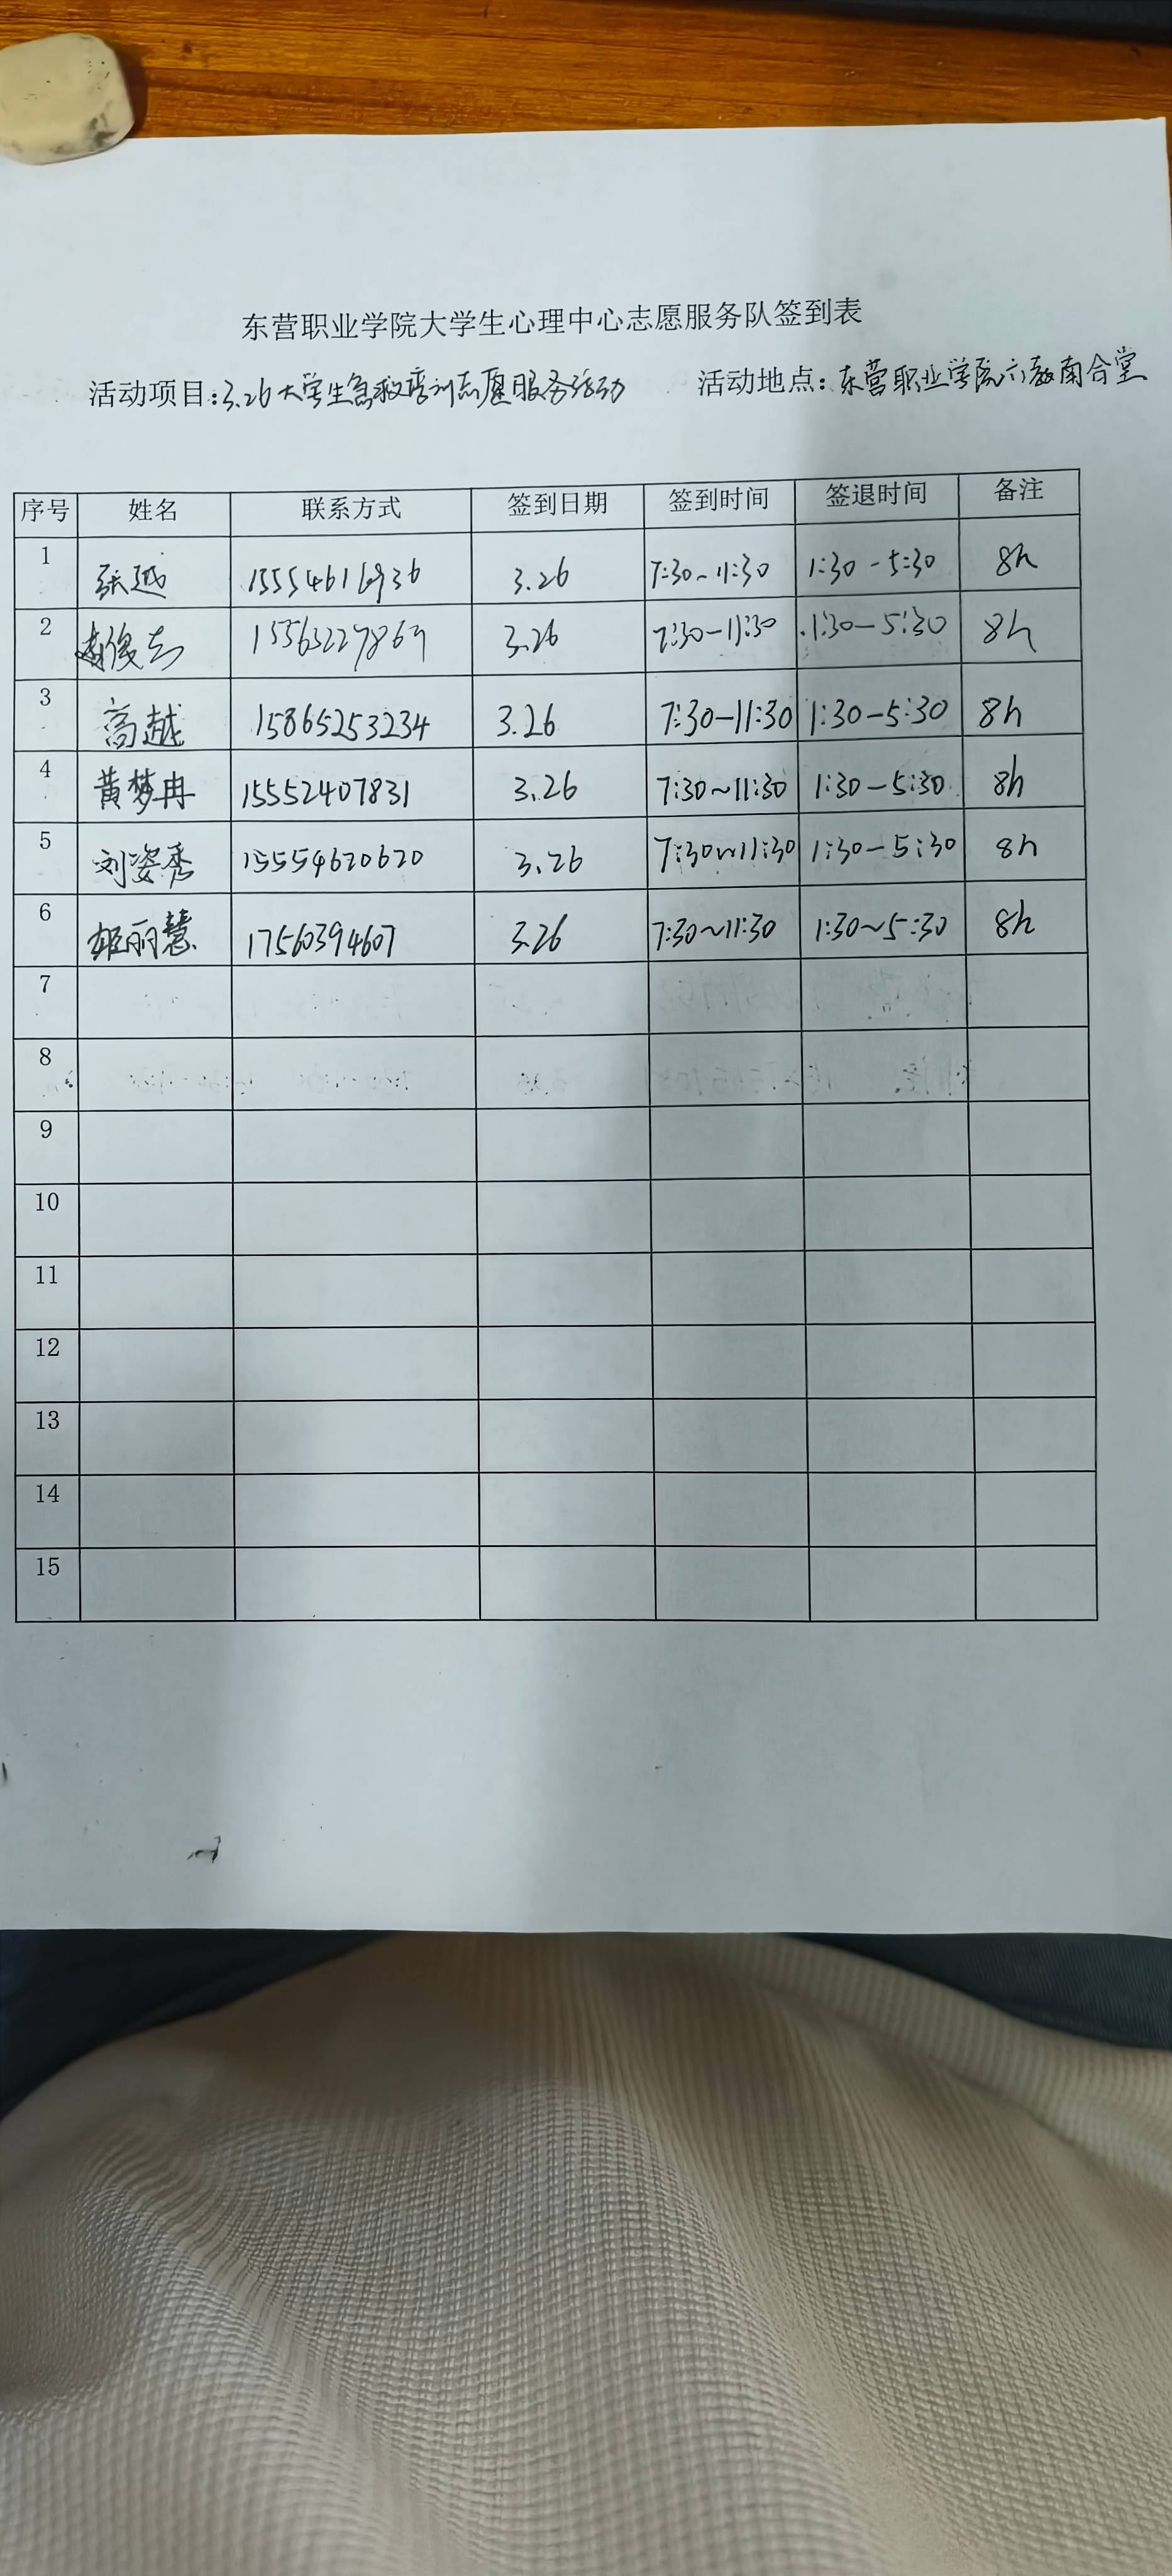 东营职业学院大学生心理中心志愿服务队签到表
活动项目:3.26大学生急救培训志愿服务活动 活动地点:东营职业学院六教南合堂
序号 姓名 联系方式 签到日期 签到时间 签退时间 备注
1 张越 15554616936 3.26 7:30~11:30 1:30-5:30 8h
2 俊志 15563227869 3.26 7:30-11:30 1:30-5:30 8h
3 高越 15865253234 3.26 7:30-11:30 1:30-5:30 8h
4 黄梦冉 15552407831 3.26 7:30~11:30 1:30-5:30 8h
5 刘姿秀 15554620620 3.26 7:30~11:30 1:30-5:30 8h
6 姬丽慧 17560394607 3.26 7:30~11:30 1:30~5:30 8h
7
8
9
10
11
12
13
14
15